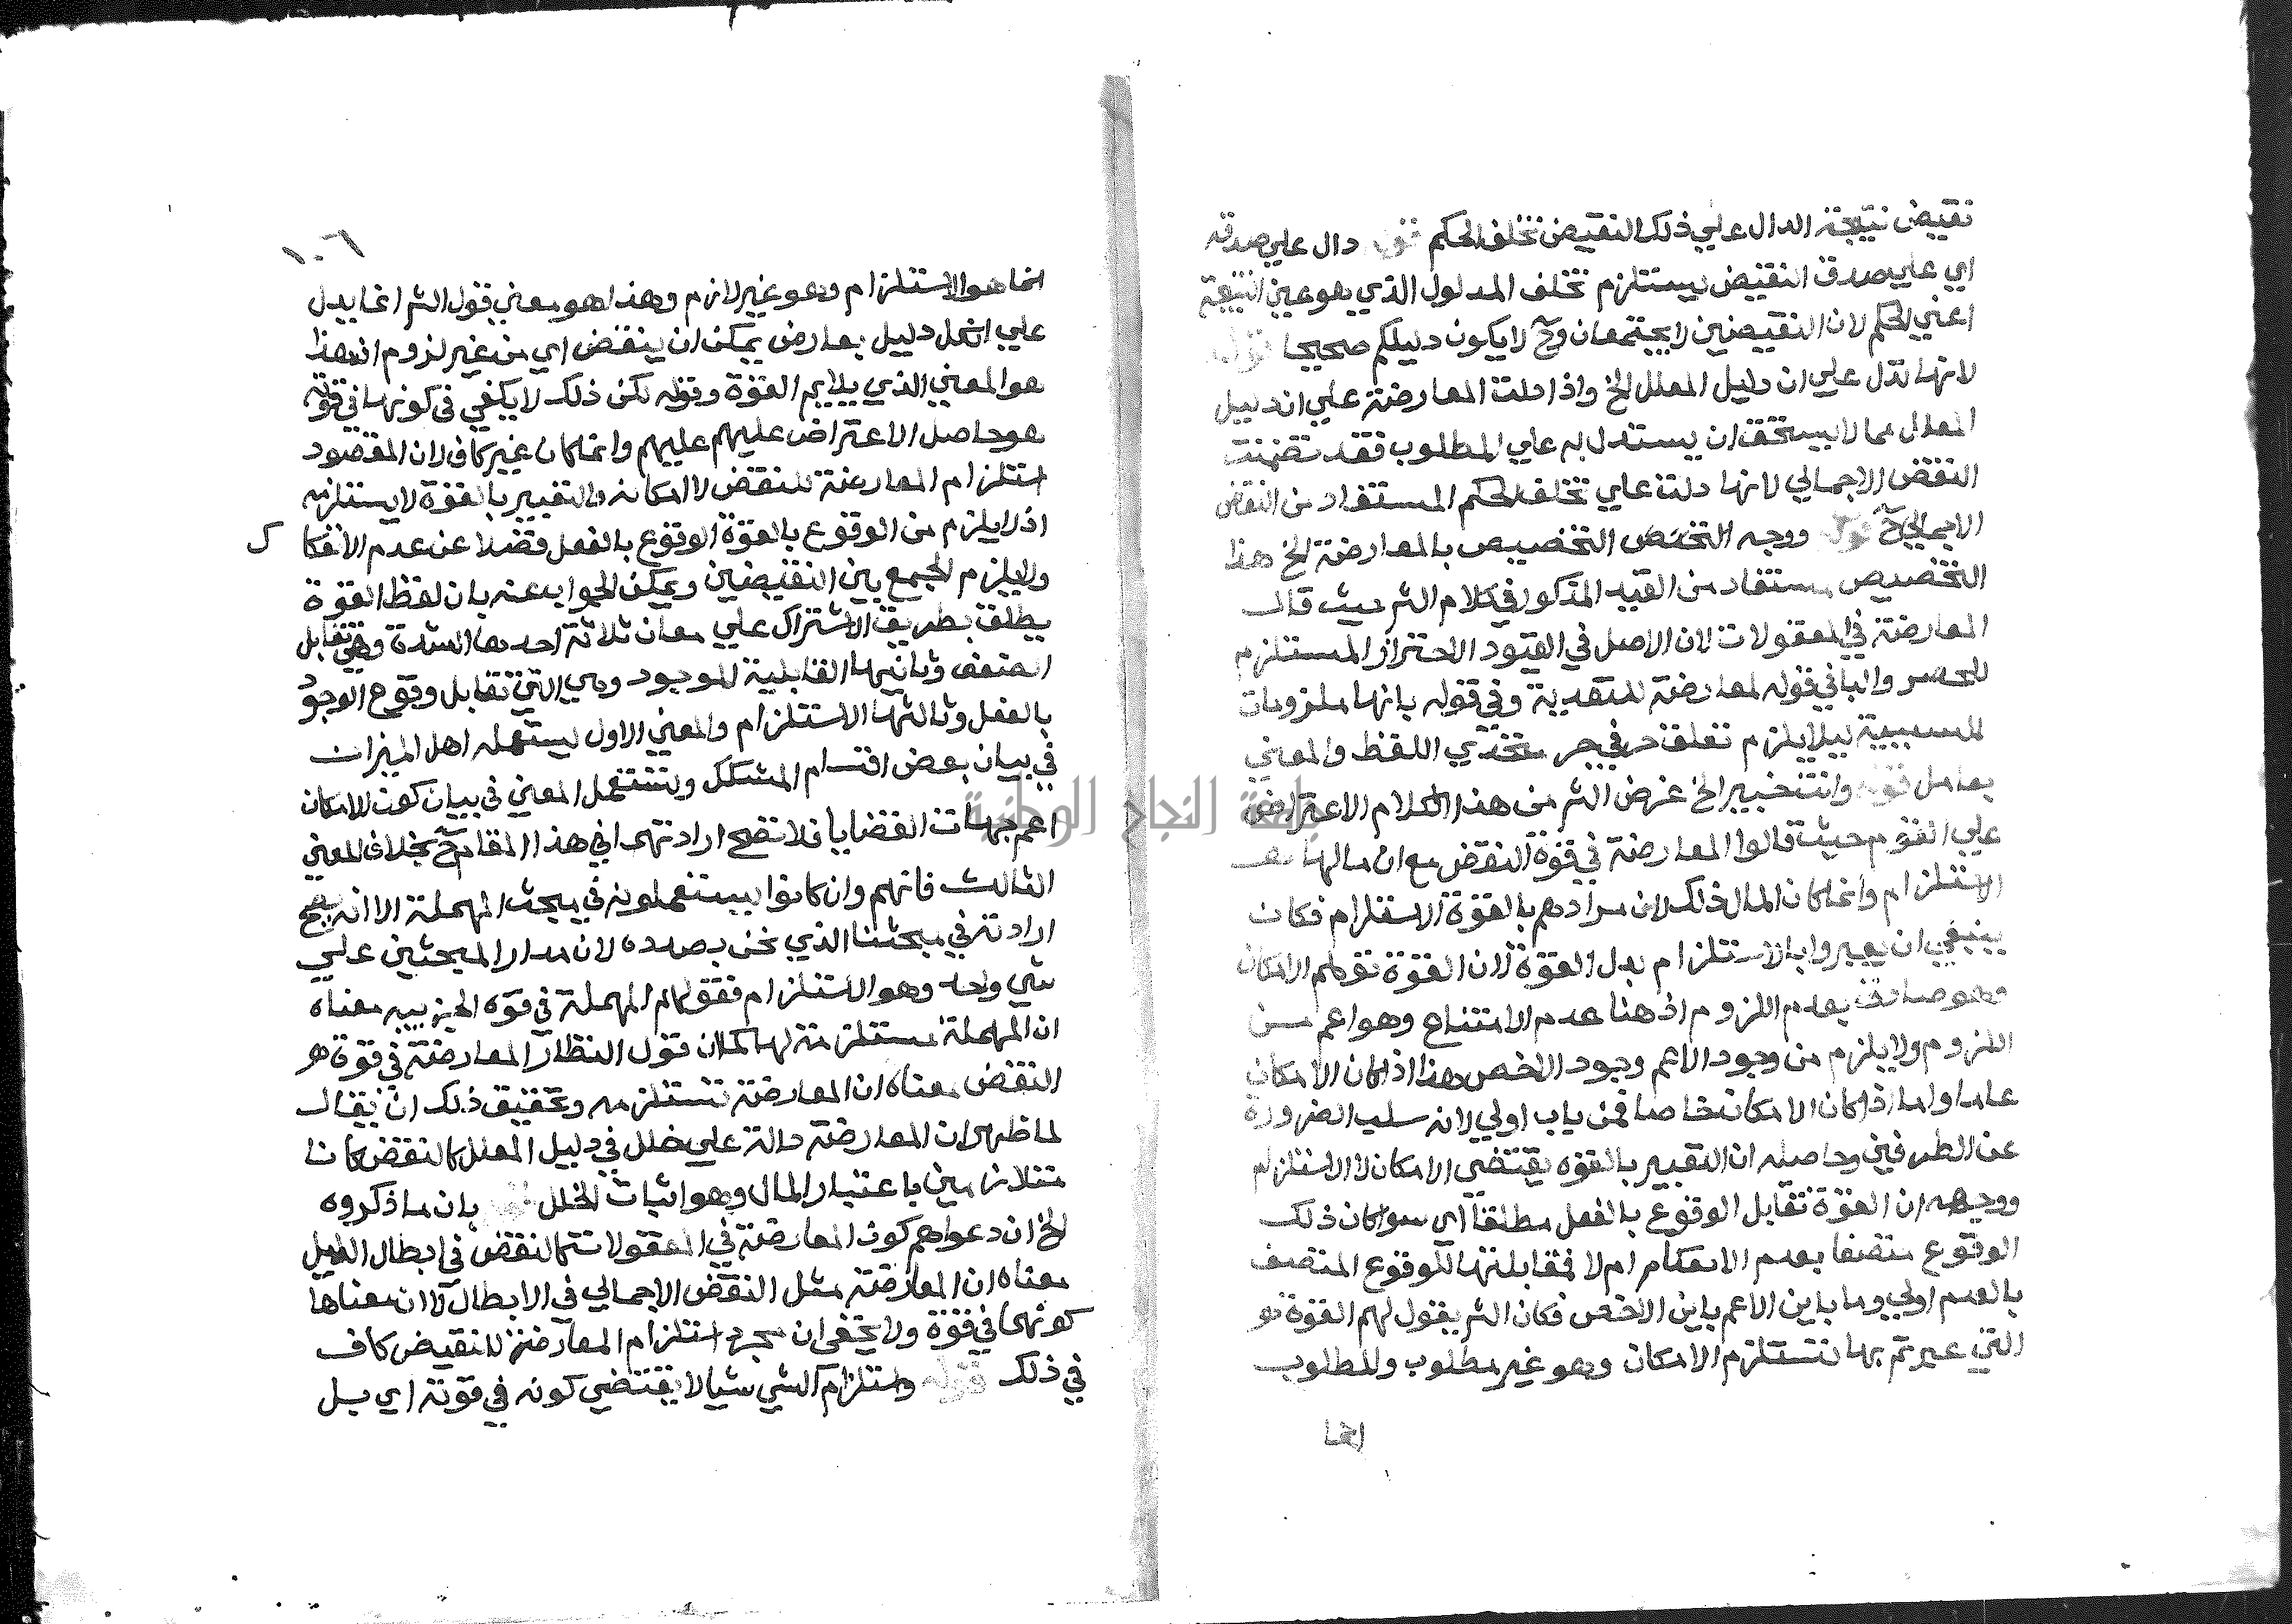 نقيض نتيجته الدال علي ذلك النقيض تخلف الحكم قوله دال علي صدقه
اي علي صدق النقيض يستلزم تخلف المدلول الذي هو عين النتيجة
اعني الحكم لان النقيضين لا يجتمعان وح لا يكون دليلكم صحيحا قوله
لانها تدل علي ان دليل المعلل الخ واذا دلت المعارضة علي ان دليل
المعلل مما لا يستحق ان يستدل به علي المطلوب فقد تضمنت
النقض الاجمالي لانها دلت علي تخلف الحكم المستفاد من النقض
الاجمالي ح قوله ووجه التخصص التخصيص بالمعارضة الخ هذا
التخصيص مستفاد من القيد المذكور في كلام الش حيث قال
المعارضة في المعقولات لان الاصل في القيود الاحتراز المستلزم
للحصر والبا في قوله لمعارضة للتعدية وفي قوله بانها ملزومات
للسببية ليلا يلزم تعلق حرفي جر متحدي اللفظ والمعني
بعامل قوله وانت خبير الخ غرض الش من هذا الكلام الاعتراض
علي القوم حيث قالوا المعارضة في قوة النقض مع ان مالها
الاستلزام وانما كان المال ذلك لان مرادهم بالقوة الاستلزام فكان
ينبغي ان يعبروا بالاستلزام بدل القوة لان القوة توهم الامكان
وهو صادق بعدم اللزوم اذ هنا عدم الامتناع وهو اعم من
اللزوم ولا يلزم من وجود الاعم وجود الاخص هذا اذا كان الامكان
عاما واما اذا كان الامكان خاصا فمن باب اولي لانه سلب الضرورة
عن الطرفين وحاصله ان التعبير بالقوة يقتضي الامكان لا الاستلزام
ووجهه ان القوة تقابل الوقوع بالفعل مطلقا اي سوا كان ذلك
الوقوع متصفا بعدم الانعكام ام لا فمقابلتها للوقوع المتصف
بالعدم اولي وما باين الاعم باين الاخص فكان الش يقول لهم القوة
التي عبرتم بها تستلزم الامكان وهو غير مطلوب والمطلوب
انما
١٠٦
انما هو الاستلزام وهو غير لازم وهذا هو معني قول الش انما يدل
علي ان كل دليل يعارض يمكن ان ينقض اي من غير لزوم اذ هذا
هو المعني الذي يلايم القوة وقوله لكن ذلك لا يكفي في كونها في قوته
هو حاصل الاعتراض عليهم عليهم وانما كان غير كاف لان المقصود
استلزام المعارضة للنقض لا امكانه والتعبير بالقوة لا يستلزمه
اذ لا يلزم من الوقوع بالقوة الوقوع بالفعل فضلا عن عدم الانفكا
ك
ولا يلزم الجمع بين النقيضين ويمكن الجواب عنه بان لفظ القوة
يطلق بطريق الاشتراك علي معان ثلاثة احدها الشدة وهي تقابل
الضعف وثانيها القابلية للوجود وهي التي تقابل وقوع الوجود
بالفعل وثالثها الاستلزام والمعني الاول يستعمله اهل الميزان
في بيان بعض اقسام المشكك ويستعمل المعني في بيان كون الامكان
اعم جهات القضايا فلا تصح ارادتهما في هذا المقام ح بخلاف المعني
الثالث فانهم وان كانوا يستعملونه في مبحث المهملة الا انه يصح
ارادته في مبحثنا الذي نحن بصدده لان مدار المبحثين علي
شي واحد وهو الاستلزام فقولكم المهملة في قوة الجزييه معناه
ان المهملة مستلزمة لها كما ان قول النظار المعارضة في قوة
النقض معناه ان المعارضة تستلزمه وتحقيق ذلك ان يقال
لما ظهر ان المعارضة دالة علي خلل في دليل المعلل كالنقض كانا
متلازمين باعتبار المال وهو اثبات الخلل قوله بان ما ذكروه
الخ ان دعواهم كون المعارضة في المعقولات كالنقض في ابطال الدليل
معناه ان المعارضة مثل النقض الاجمالي في الابطال لا ان معناها
كونها في قوة ولا يخفي ان مجرد استلزام المعارضة للنقيض كاف
في ذلك قوله واستلزام الشي شيا لا يقتضي كونه في قوته اي بل
جامعة النجاح الوطنية